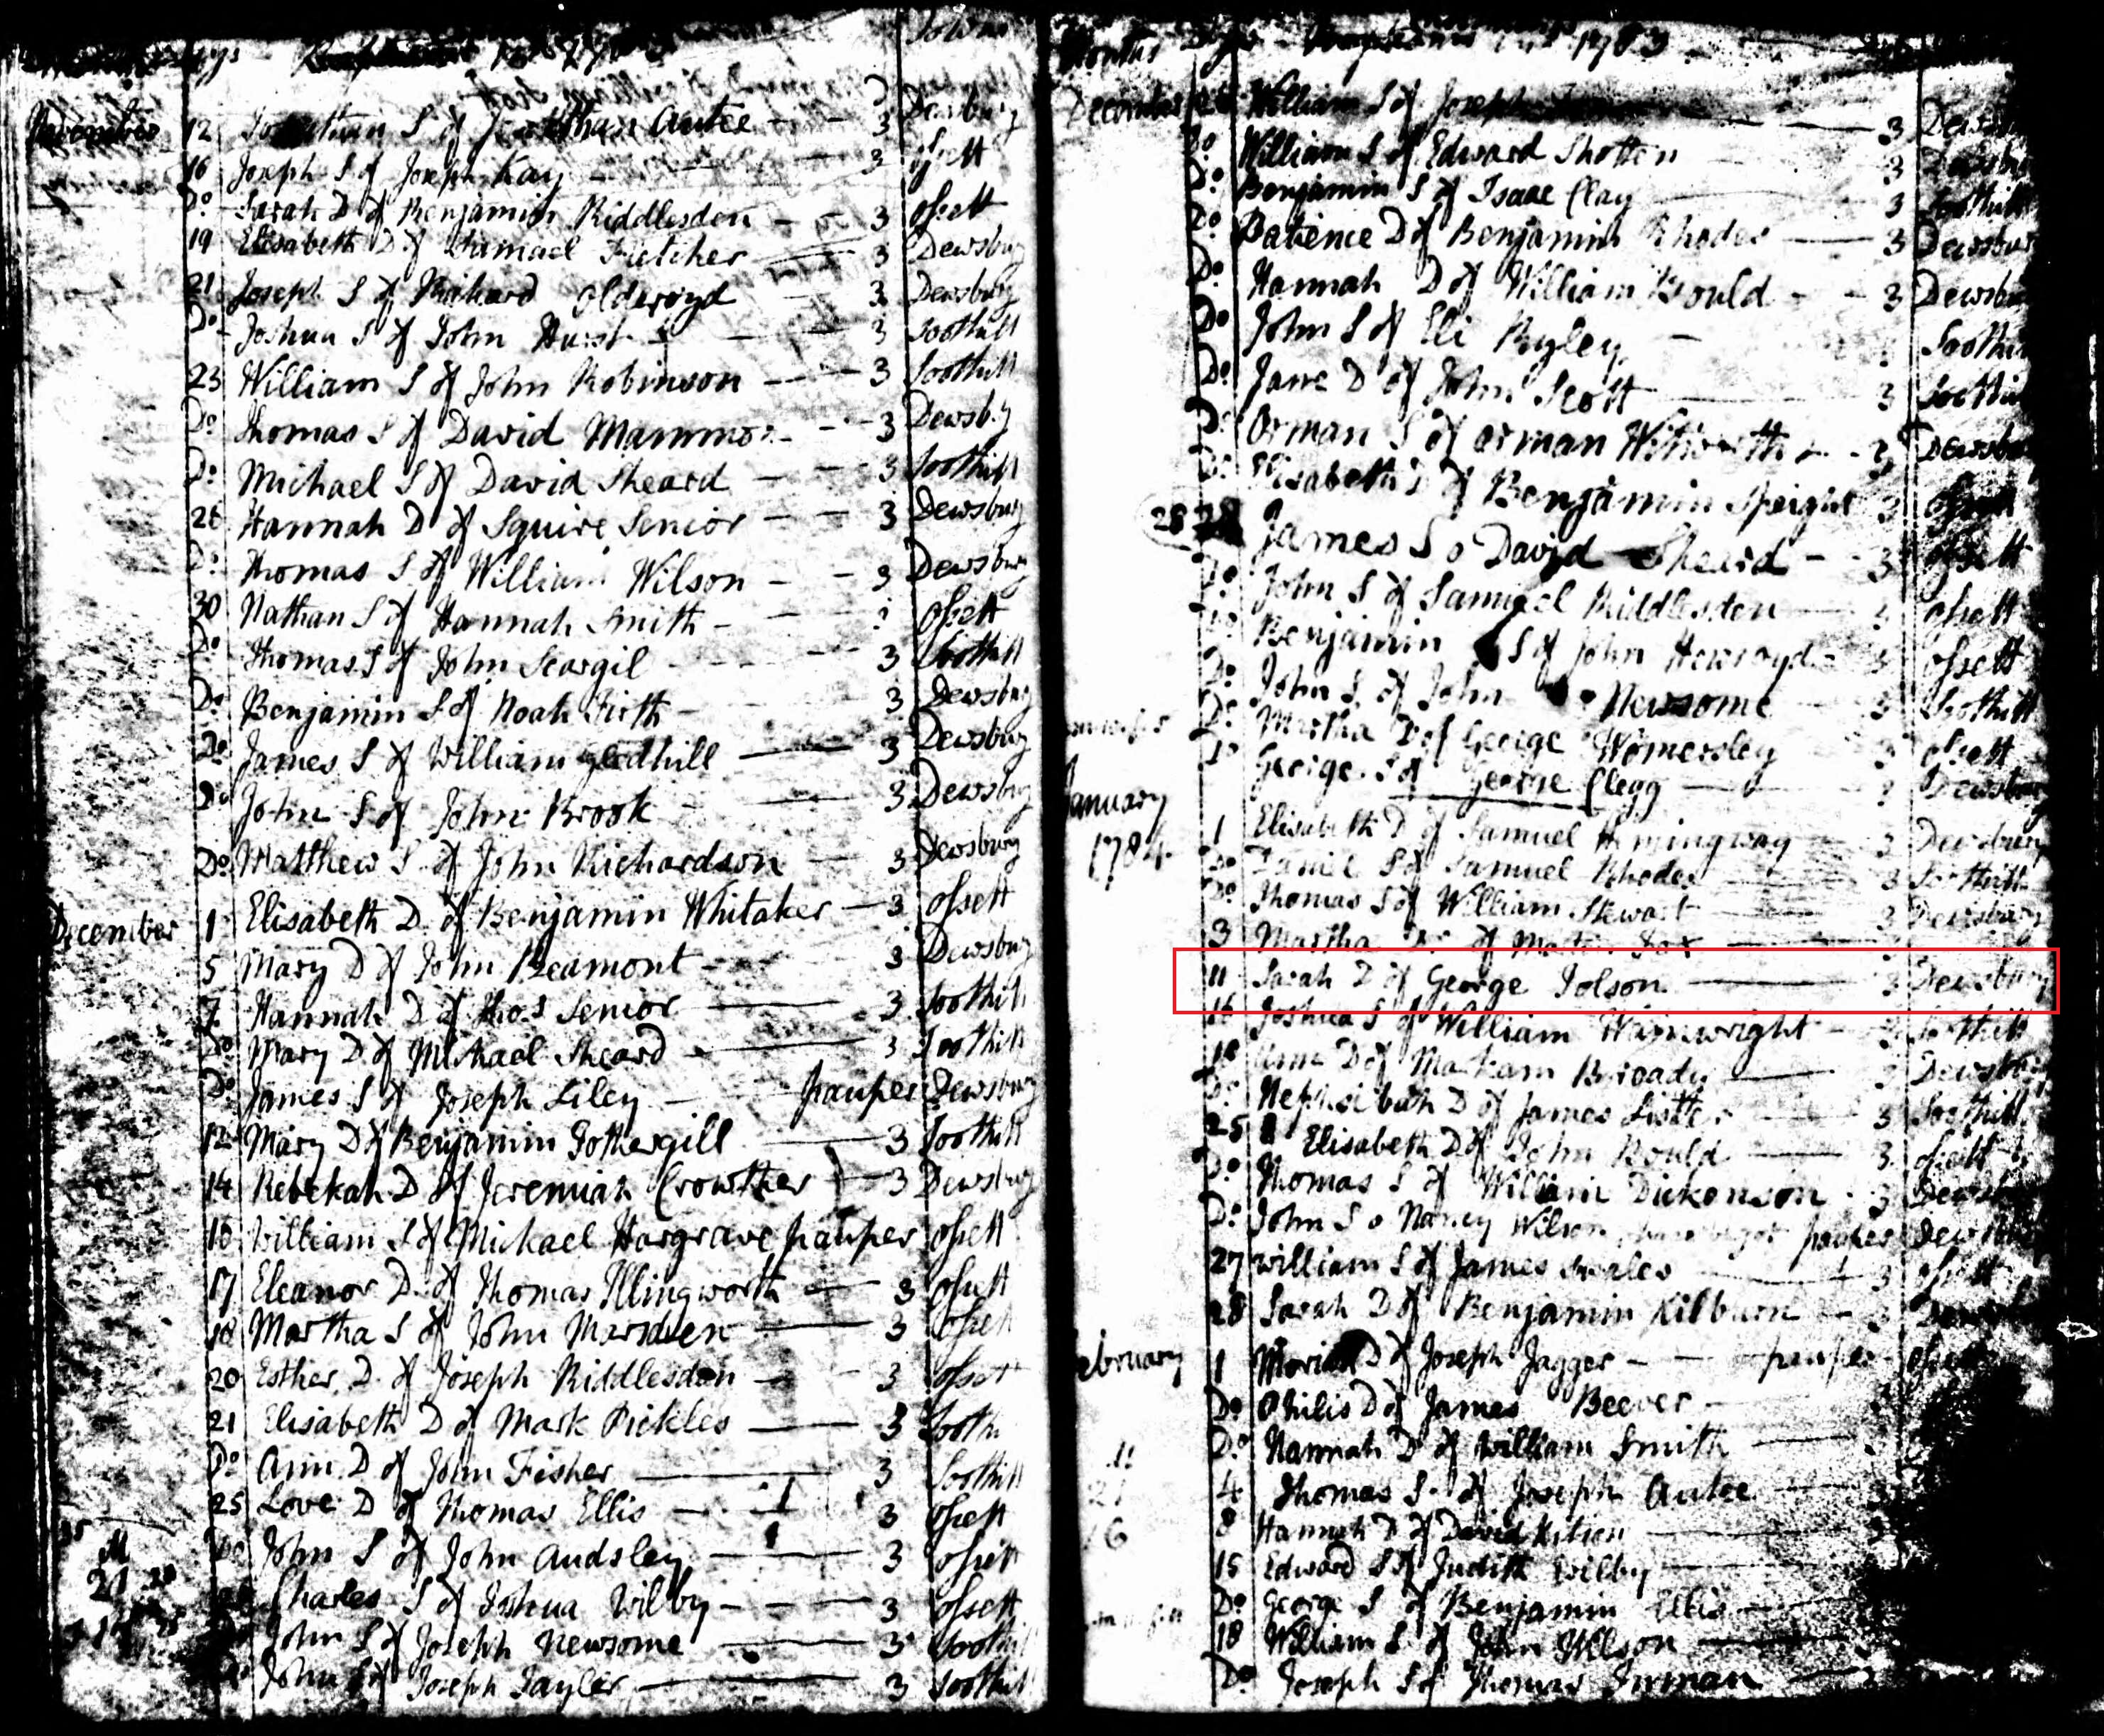 Towns
12 Jonathan S of Jonathan Autee 3 Dewsbury
16 Joseph S of Joseph Kay 3 Ossett
Do Sarah D of Benjamin Riddlesden 3 Ossett
19 Elisabeth D of Samuel Fletcher 3 Dewsbury
21 Joseph S of Richard Olderoyd 3 Dewsbury
Do Joshua S of John Hurst 3 Soothill
23 William S of John Robinson 3 Soothill
Do Thomas S of David 3 Dewsby
Do Michael S of David Sheard 3 Soothill
26 Hannah D of Squire Senior 3 Dewsbury
Do Thomas S of William Wilson 3 Dewsbury
30 Nathan S of Hannah Smith Ossett
Do Thomas S of John Scargil 3 Soothill
Do Benjamin S of Noah Firth 3 Dewsbury
Do James S of William Gledhill 3 Dewsbury
Do John S of John Brook 3 Dewsbury
Do Matthew S of John Richardson 3 Dewsbury
December 1 Elisabeth D of Benjamin Whitaker 3 Ossett
5 Mary D of John Beamont 3 Dewsbury
7 Hannah D of Thos Senior 3 Soothill
Do Mary D of Michael Sheard 3 Soothill
Do James S of Joseph Liley pauper Dewsbury
12 Mary D of Benjamin Fothergill 3 Soothill
14 Rebekah D of Jeremiah Crowther 3 Dewsbury
16 William S of Michael Hargrave pauper Ossett
17 Eleanor D of Thomas Illingworth 3 Ossett
18 Martha S of John Marsden 3 Ossett
20 Esther D of Joseph Riddlesden 3 Ossett
21 Elisabeth D of Mark Pickles 3 Sooth
Do Ann D of John Fisher 3 Soothill
25 Love D of Thomas Ellis 3 Ossett
Do John S of John Audsley 3 Ossett
Charles S of Joshua Wilby 3 Ossett
John S of Joseph Newsome 3 Soothill
John S of Joseph Tayler 3 Soothill
Months 1783
December William S of Joseph 3 Dewsbury
Do William S of Edward Shotten 3
Do Benjamin S of Isaac Clay 3 Soothill
Do Patience D of Benjamin Rhodes 3 Dewsbury
Do Hannah D of William Gould 3 Dewsbury
Do John S of Eli Soothill
Do Jane D of John Scott 3 Soothill
Do Orman S of Orman Dewsbury
Do Elisabeth D of Benjamin Speight 3 Ossett
28 James S o David Sheard 3 Ossett
Do John S of Samuel Riddlesden Ossett
Do Benjamin S of John 3 Ossett
Do John S of John Newsome 3 Soothill
Do Martha D of George Womersley 3 Ossett
Do George S of George Clegg Dewsbury
January
1784
1 Elisabeth D of Samuel Hemingway 3 Dewsbury
Do Daniel S of Samuel Rhodes 3 Soothill
Do Thomas S of William Stewart 3 Dewsbury
3 Martha of
11 Sarah D of George Jolson 3 Dewsbury
16 Joshua S of William Wainwright Soothill
18 Ann D of Markam Broady Dewsbury
Do Hephsibah D of James Lister 3 Soothill
25 Elisabeth D of John Gould 3 Ossett
Do Thomas S of William Dickonson 3 Dewsbury
Do John S o Nancy Wilson pauper Dewsbury
27 William S of James Swales 3 Ossett
28 Sarah D of Benjamin Kilburn
February 1 D of Joseph Jagger pauper Ossett
Do Philis D of James Beever
Do Hannah D of William Smith
4 Thomas S of Joseph Autee
8 Hannah D of David
15 Edward S of Judith Wilby
Do George S of Benjamin Ellis
18 William S of John Wilson
Do Joseph S of Thomas